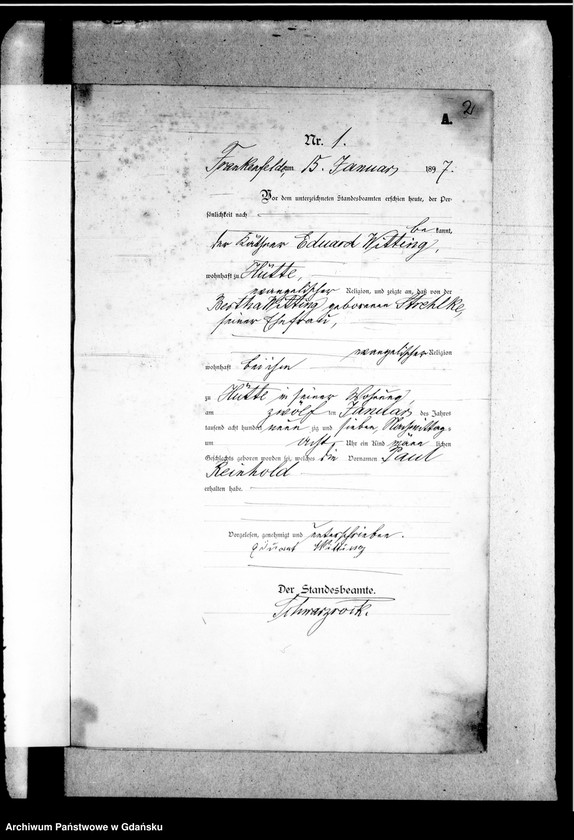 2
A.
Nr. 1.
Frankenfelde am 15. Januar 1897.
Vor dem unterzeichneten Standesbeamten erschien heute, der Per-
sönlichkeit nach
be kannt,
der Käthner Eduard Witting,
wohnhaft zu Hütte,
evangelischer Religion, und zeigte an, daß von der
Bertha Witting geborenen Strehlke,
seiner Ehefrau,
evangelischer Religion
wohnhaft bei ihm
zu Hütte in seiner Wohnung,
am zwölf ten Januar des Jahres
tausend acht hundert neun zig und sieben, Nachmittags
um acht Uhr ein Kind männ lichen
Geschlechts geboren worden sei, welches die Vornamen Paul
Reinhold
erhalten habe.
Vorgelesen, genehmigt und unterschrieben.
Eduard Witting
Der Standesbeamte.
Schwarzrock.
Archiwum Państwowe w Gdańsku